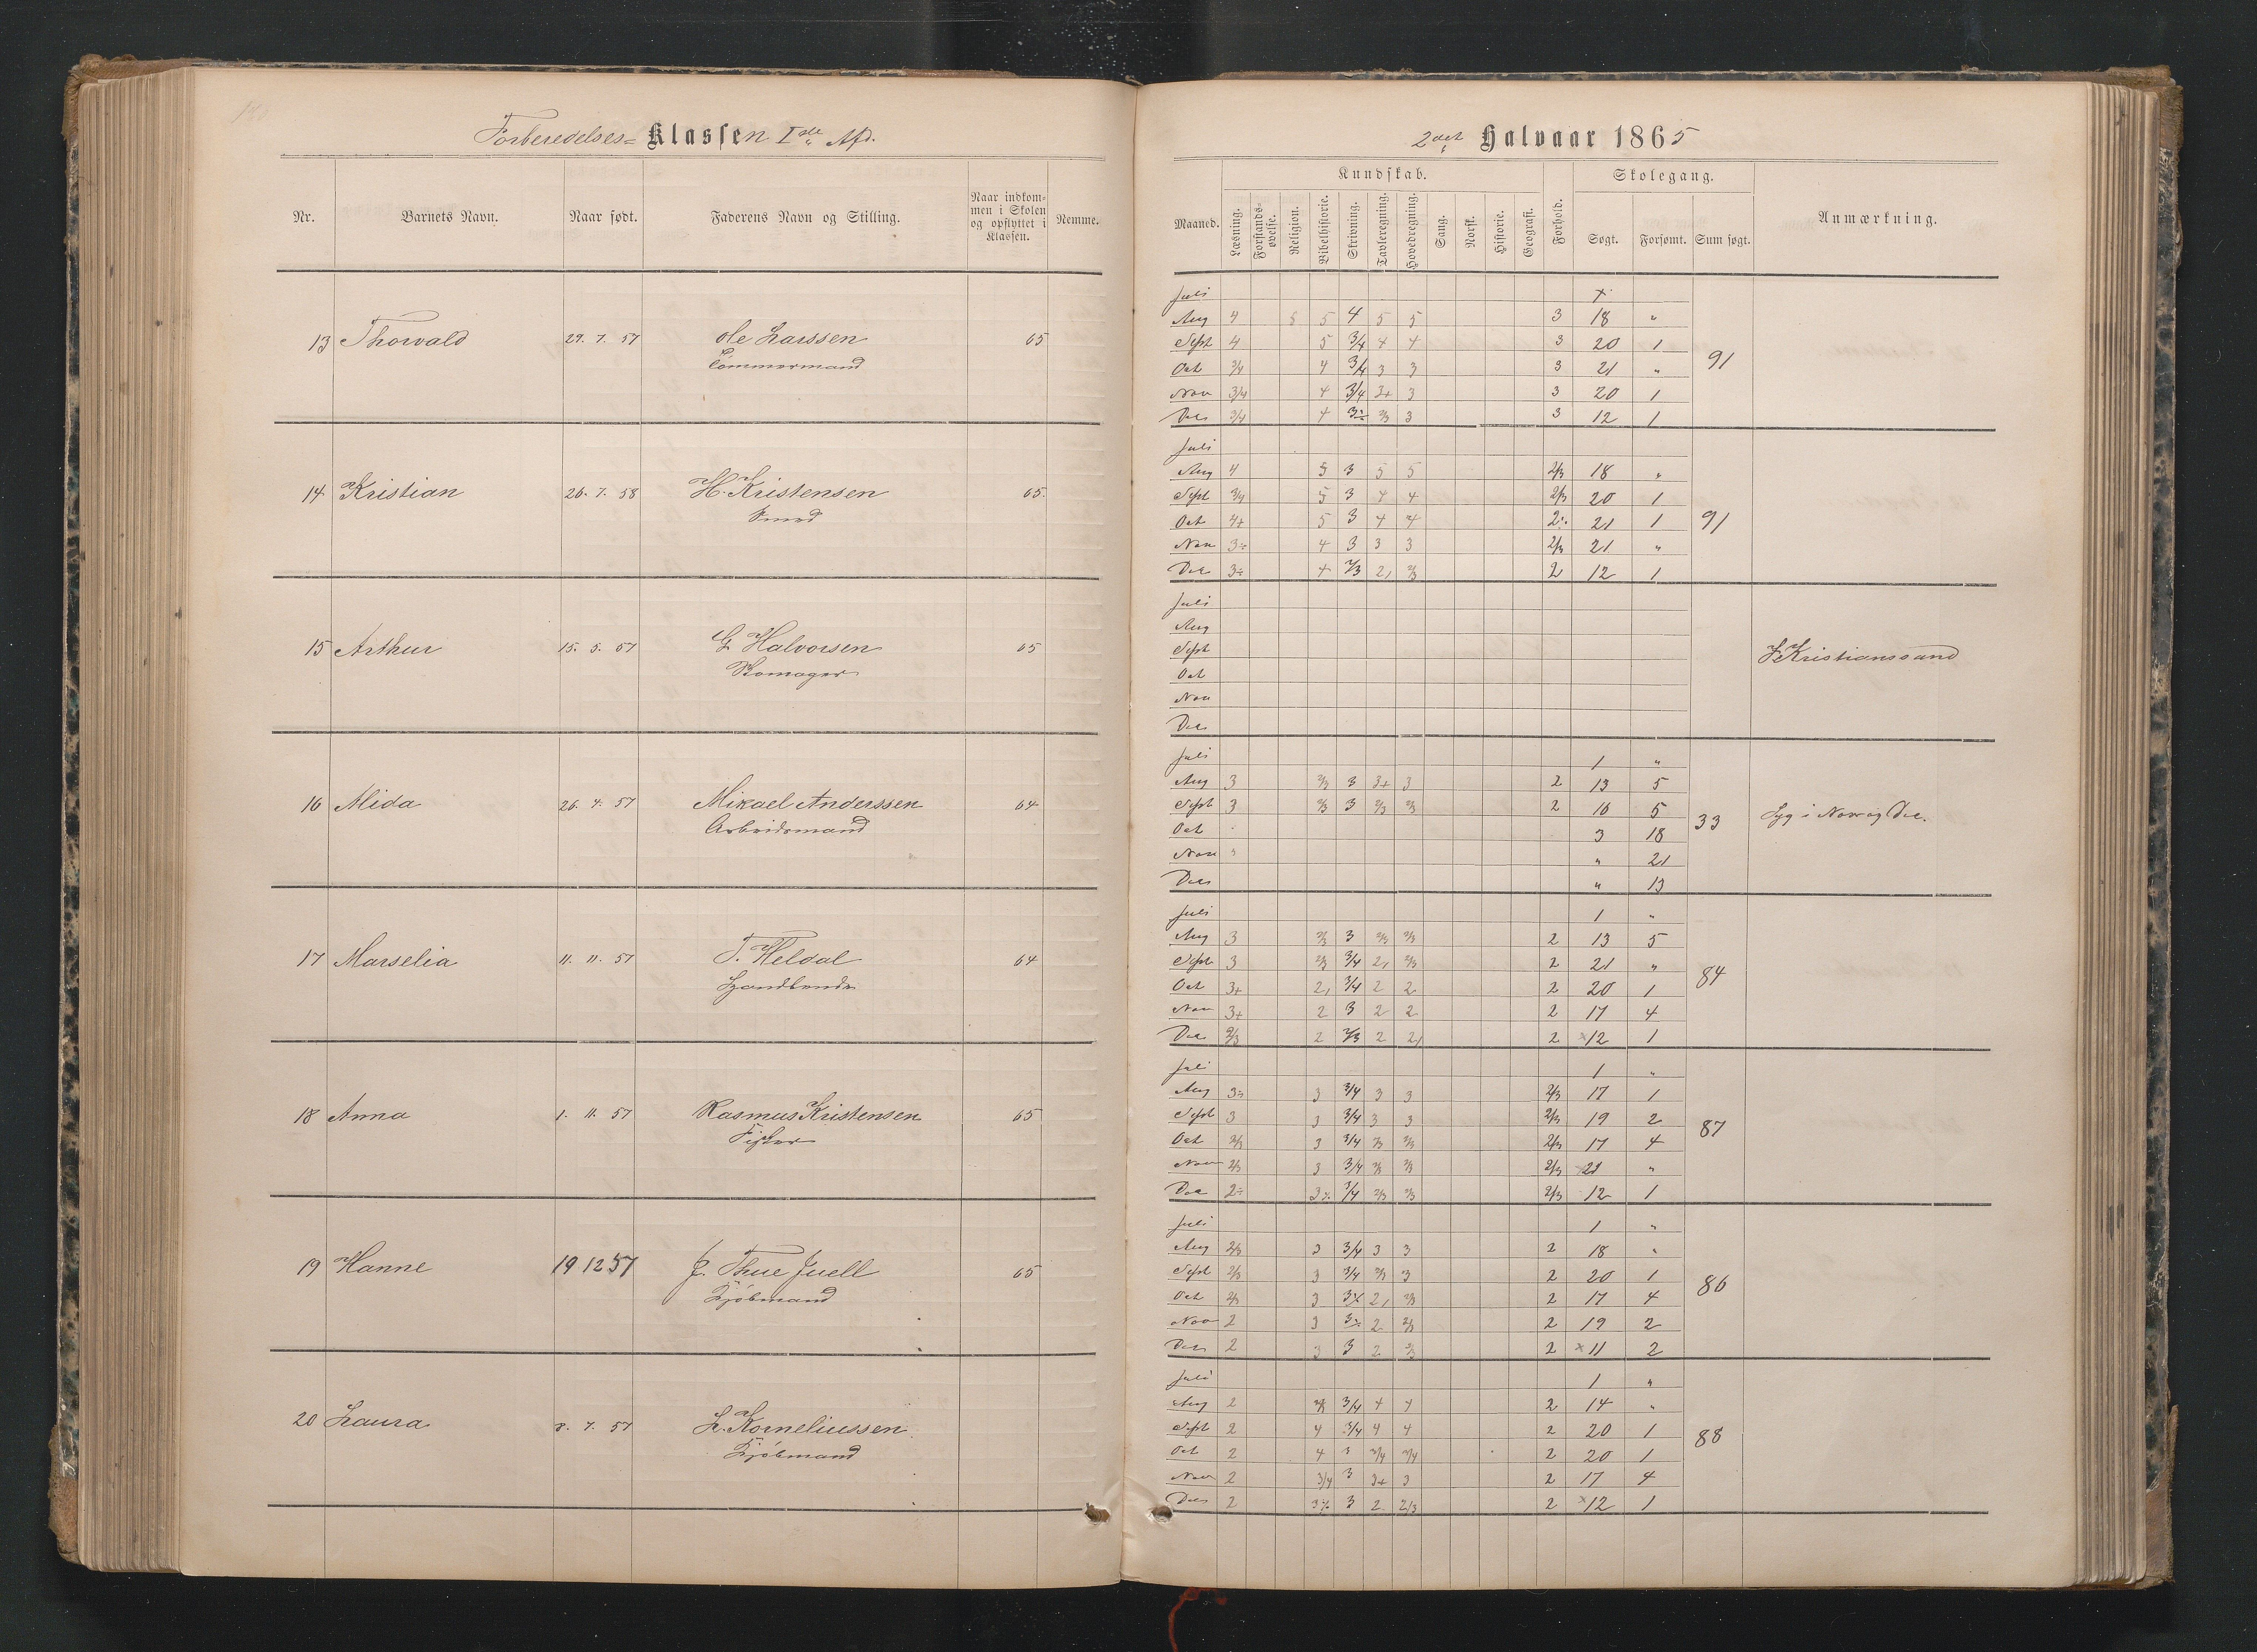 Forberedelses= Klassen Iste Afd.
Nr. Barnets Navn. Naar født. Faderens Navn og Stilling. Naar indkommen i Skolen og opflyttet i Klassen. Nemme.
13 Thorvald 29. 7. 57 Ole Larssen 65
Tømmermand
14 Kristian 26. 7. 58 H. Kristensen 65.
Smed
15 Arthur 15. 5. 57 G Halvorsen 65
Skomager
16 Alida 26. 4. 57 Mikael Anderssen 64
Arbeidsmand
17 Marselia 11. 11. 57 T. Heldal 64
18 Anna 1. 11. 57 Rasmus Kristensen 65
Fisker
19 Hanne 19 12 57 J. Thue Juell 65
Kjøbmand
20 Laura 8. 7. 57 L. Korneliussen
Kjøbmand
2det Halvaar 1865
Kundskab. Skolegang.
Maaned. Læsning. Forstands-øvelse. Religion. Bibelhistorie. Skrivning. Tavleregning. Hovedregning. Sang. Norsk. Historie. Geografi. Forhold. Søgt. Forsømt. Sum søgt. Anmærkning.
Juli
Aug 4 5 4 5 5 3 18 "
Sept 4 5 3/4 4 4 3 20 1
Oct 3/4 4 3/4 3 3 3 21 "
91
Nov 3/4 4 3/4 3+ 3 3 20 1
Dec 3/4 4 3÷ 2/3 3 3 12 1
Juli
Aug 4 5 3 5 5 2/3 18 "
Sept 3/4 5 3 4 4 2/3 20 1
Oct 4+ 5 3 4 4 2÷ 21 1
91
Nov 3÷ 4 3 3 3 2/3 21 "
Dec 3÷ 4 2/3 2, 2/3 2 12 1
Juli
Aug
Sept
Kristianssand
Oct
Nov
Dec
Juli 1 "
Aug 3 2/3 3 3+ 3 2 13 5
Sept 3 2/3 3 2/3 2/3 2 16 5
33 Syg i Nov og Dec.
Oct 3 18
Nov " 21
Dec " 13
Juli 1 "
Aug 3 2/3 3 2/3 2/3 2 13 5
Sept 3 2/3 3/4 2, 2/3 2 21 "
84
Oct 3+ 2, 3/4 2 2 2 20 1
Nov 3+ 2 3 2 2 2 17 4
Dec 2/3 2 2/3 2 2, 2 ×12 1
Juli 1 "
Aug 3÷ 3 3/4 3 3 2/3 17 1
Sept 3 3 3/4 3 3 2/3 19 2
87
Oct 2/3 3 3/4 2/3 2/3 2/3 17 4
Nov 2/3 3 3/4 2/3 2/3 2/3 21 "
Dec 2÷ 3÷ 3/4 2/3 2/3 2/3 12 1
Juli 1 "
Aug 2/3 3 3/4 3 3 2 18 "
Sept 2/3 3 3/4 2/3 3 2 20 1
86
Oct 2/3 3 3÷ 2, 2/3 2 17 4
Nov 2 3 3÷ 2 2/3 2 19 2
Dec 2 3 3 2 2/3 2 ×11 2
Juli 1 "
Aug 2 3/4 4 4 2 14 "
Sept 2 4 3/4 4 4 2 20 1
88
Oct 2 4 3 3/4 3/4 2 20 1
Nov 2 3/4 3 3+ 3 2 17 4
Dec 2 3÷ 3 2 2/3 2 ×12 1